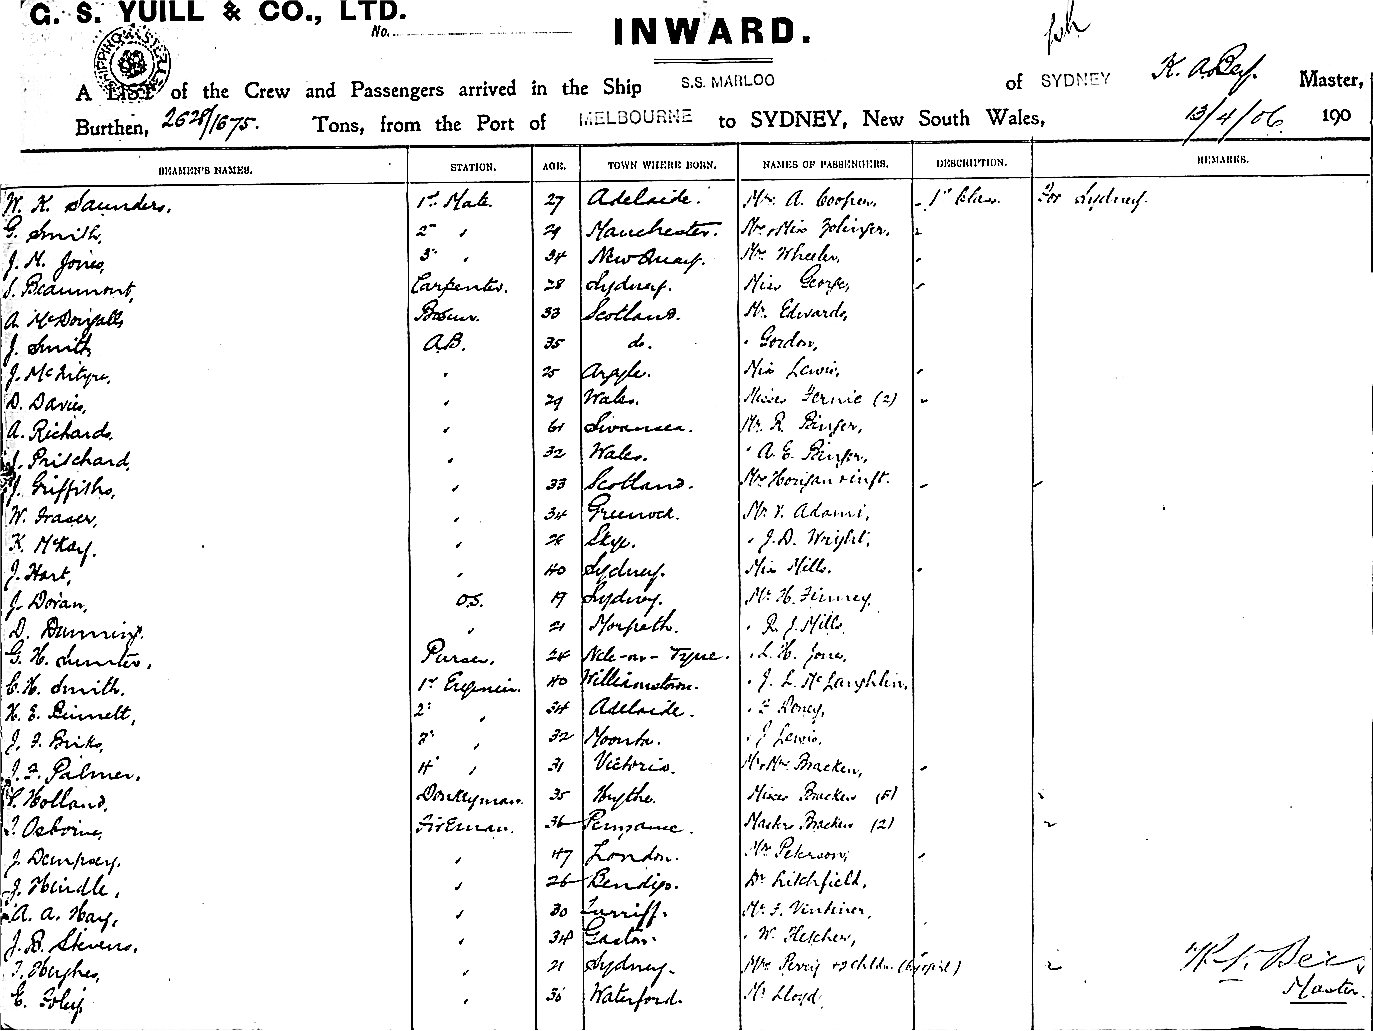 G. S. YUILL & CO., LTD.
No.
INWARD.
A LIST of the Crew and Passengers arrived in the Ship S.S. MARLOO of SYDNEY Master,
Burthen, 2628/1675. Tons, from the Port of MELBOURNE to SYDNEY, New South Wales, 13/4/06 190
SEAMEN'S NAMES. STATION. AGE. TOWN WHERE BORN. NAMES OF PASSENGERS. DESCRIPTION. REMARKS.
W. K. Saunders, 1st Mate 27 Adelaide. Mr. A. Cooper, 1st Class. For Sydney.
G. Smith, 2nd " 29 Manchester. Mr & Miss
J. M. Jones, 3rd " 34 New Quay. Wheeler,
Beaumont, Carpenter. 28 Sydney. Miss George,
A. McDougall, Bosun. 33 Scotland. Mr. Edwards,
J. Smith A.B. 35 do. " Gordon,
J. McIntyre, " 25 Argyle. Miss Lewis,
D. Davies, " 29 Wales. Misses Fernie (2)
A. Richards, " 61 Swansea. Mr. R.
J. Pritchard, " 32 Wales. " A. E.
J. Griffiths, " 33 Scotland. Mrs Horigan & inft.
W. Fraser, " 34 Greenock. Mr. V. Adami,
K. McKay. " 28 Skye. " J. D. Wright,
J. Hart, " 40 Sydney. Miss Mills.
J. Doran, O.S. 19 Sydney. Mr. H. Finney,
D. " 21 Morpeth. " R. J. Mills,
G. H. Purser. 24 Ncle-on-Tyne. " L. H. Jones,
C. H. Smith. 1st Engineer. 40 Williamstown. " J. L. McLaughlin,
H. E. Bennett, 2nd " 34 Adelaide. " F.
J. F. 3rd " 32 Moonta. " J. Lewis,
J. F. Palmer, 4th " 31 Victoria. Mr & Mrs Bracken,
Holland, Donkeyman. 35 Hythe. Misses Bracken (5)
Osborne, Fireman. 36 Penzance. Masters Bracken (2)
J. Dempsey. " 47 London. Peterson,
J. Hindle, " 26 Bendigo. Dr Litchfield,
A. A. Hay, " 30 Turriff. Mr. F.
J. B. Stevens, " 34 " W. Fletcher,
Hughes, " 21 Sydney. Mrs & 2 childn.
E. Foley " 36 Waterford. Mr Lloyd,
Master.